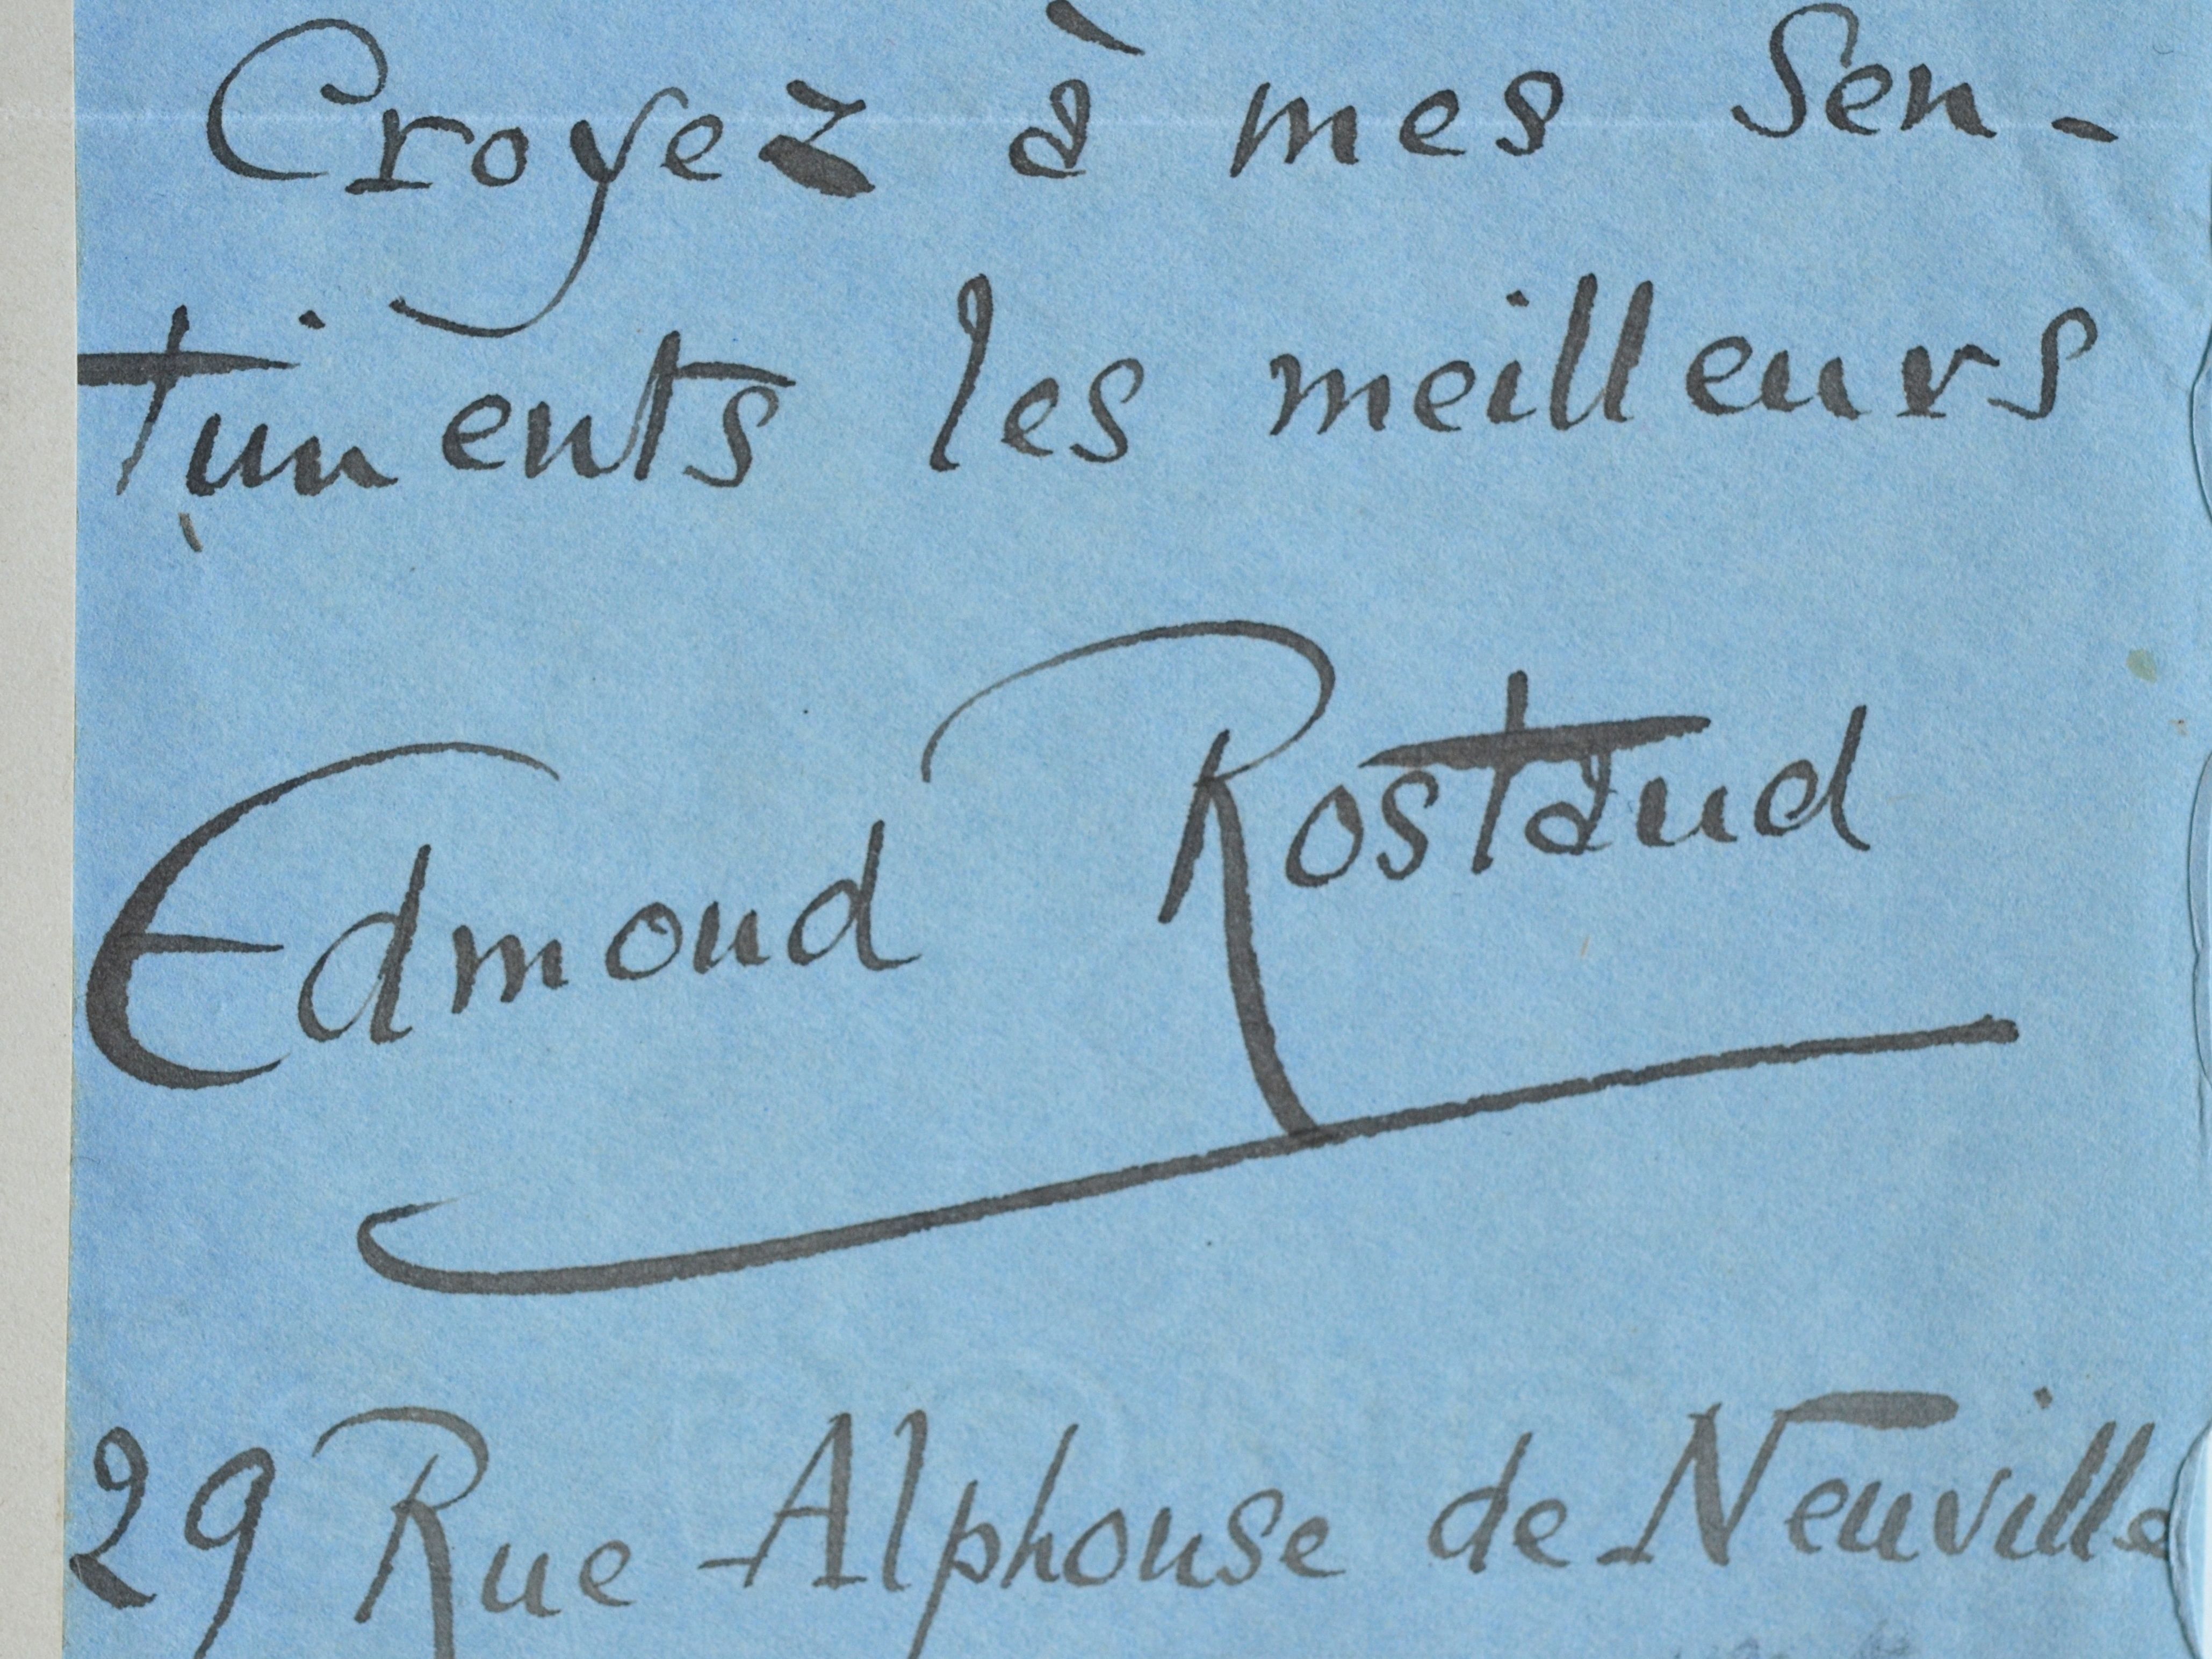 Croyez à mes sen-
timents les meilleurs
Edmond Rostand
29 Rue Alphonse de Neuville